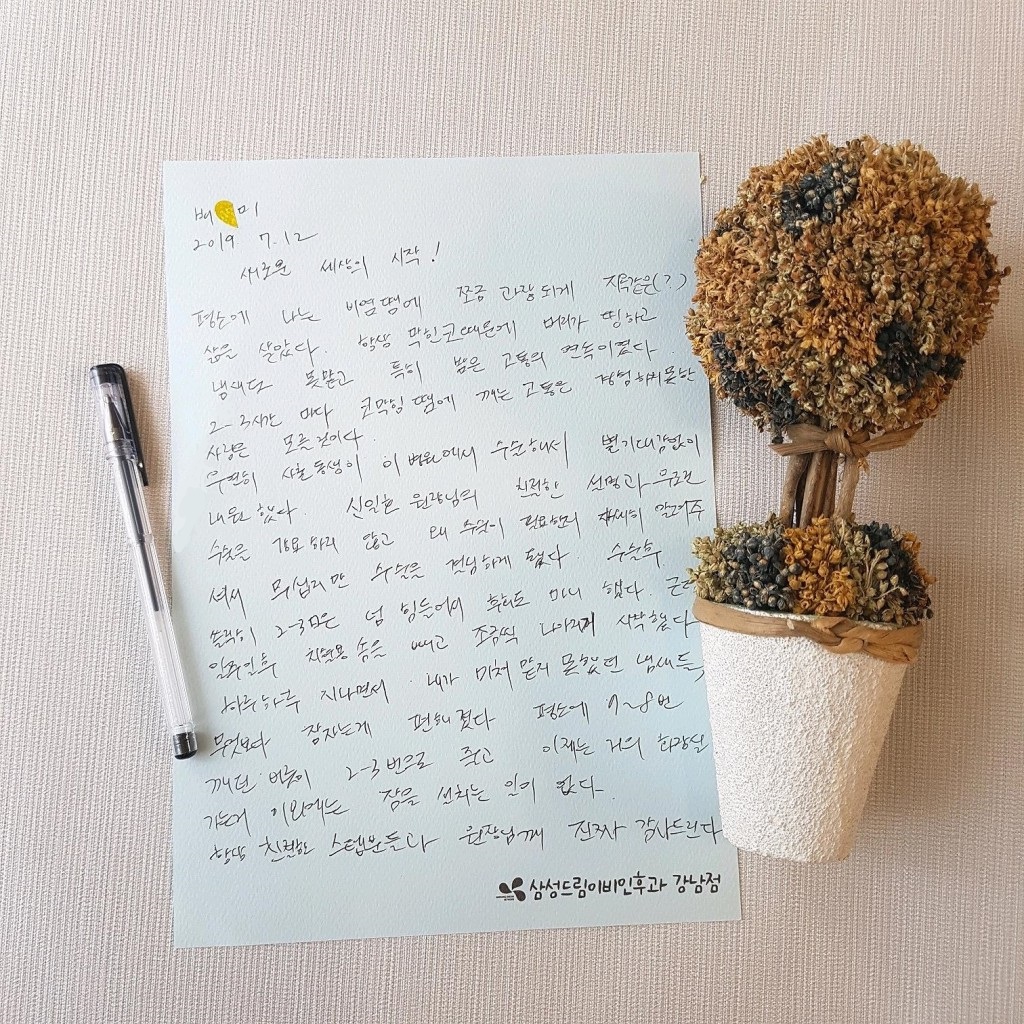 배 미
2019 7.12
새로운 세상의 시작!
평소에 나는 비염땜에 쪼금 과장되게 지옥같은(?)
삶을 살았다. 항상 막힌코때문에 머리가 띵하고
냄새도 못맡고 특히 밤은 고통의 연속이였다.
2-3시간 마다 코막힘 땜에 깨는 고통은 경험하지못한
사람은 모를것이다.
우연히 사촌동생이 이 병원에서 수술해서 별기대감없이
내원했다. 신일호 원장님의 친절한 설명과 무조건
수술을 강요하지 않고 왜 수술이 필요한지 자세히 알려주
셔서 무섭지만 수술을 결심하게 됐다. 수술후
솔직히 2-3일은 넘 힘들어서 후회도 마니 했다. 근데
일주일후 치료용 솜을 빼고 조금씩 나아지기 시작했다
하루하루 지나면서 내가 미처 맡지 못했던 냄새들,
무엇보다 잠자는게 편해졌다 평소에 7~8번
깨던 버릇이 2-3번으로 줄고 이제는 거의 화장실
가는거 이외에는 잠을 설치는 일이 없다.
항상 친절한 스텝분들과 원장님께 진짜 감사드린다
삼성드림이비인후과 강남점